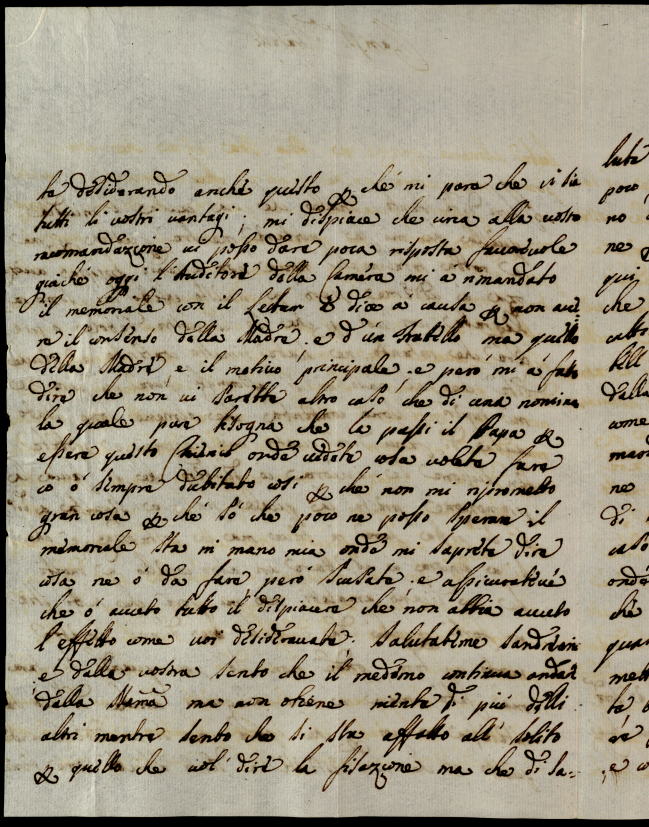 te desiderando anche questo p che mi pare che vi sia
tutti li vostri vantagi; mi dispiace che circa alla vostra
racomandazione vi posso dare poca risposta favorevole
giaché oggi l'Auditore della Camera mi à rimandato
il memoriale con il Lettum e dice a causa p non ave
re il consenso della Madre e d'un Fratello ma quello
della Madre e il motivo principale e però mi à fatto
dire che non vi sarebbe altro caso che di una nomina
la quale pure bisogna che la passi il Papa p
essere questo Chierico onde vedete cosa volete fare
io ò sempre dubitato così p che non mi riprometto
gran cosa p che sò che poco ne posso sperare il
memoriale sta in mano mia onde mi saprete dire
cosa ne ò da fare però scusate e assicuratevi
che ò avuto tutto il dispiacere che non abbia avuto
l'effetto come voi desideravate. Salutateme
e dalla vostra sento che il medemo continua andare
dalla Mamā ma non otiene niente di più delli
altri mentre sento che si sta affatto all' solito
p quello che vol dire la situazione ma che di sa-

lute
poco
no
ne
qui
che

dell
dalla
come

ne
di
caso
onde
che

te
re
e